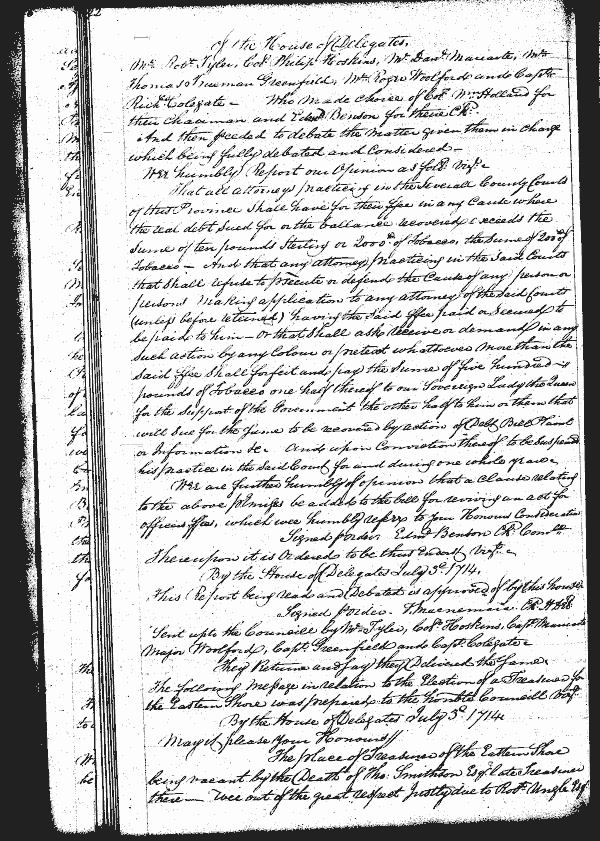 of the House of Delegates,
Mr. Robt. Tyler, Col. Philip Hoskins, Mr. Danl. Mariarte, Mr.
Thomas Trueman Greenfield, Mr. Roger Woolford and Capt.
Richd. Colegate — Who made choice of Col. Wm. Holland for
their Chairman and Edwd. Benson for their Clk.
And then pceeded to debate the matter given them in charge
which being fully debated and Considered —
Wee humbly Report our Opinion as follo. vizt. —
That all attorneys practicing in the Severall County Courts
of this Province Shall have for their ffee in any Cause where
the real debt Sued for or the ballance recovered exceeds the
Sume of ten pounds Sterling or 2000 lb. of Tobacco, the Sume of 200 lb. of
Tobacco — And that any attorney practicing in the Said Courts
that Shall refuse to psecute or defend the Cause of any person or
persons making application to any attorney of the Said Courts
(unless before retained) having the Said ffee paid or Secured to
be paid to him — or that Shall ask receive or demand in any
Such action by any Colour or pretext whatsoever more than the
Said ffee Shall forfeit and pay the Sume of five hundred
pounds of Tobacco one half thereof to our Sovereign Lady the Queen
for the Support of the Government the other half to him or them that
will Sue for the Same to be recovered by action of Debt Bill Plaint
or Information &c. And upon Conviction thereof to be Suspended
his practice in the Said Court for and during one whole year —
Wee are further humbly of opinion that a Clause relating
to the above pmises be added to the bill for reviving an act for
officers ffees, which wee humbly referr to Your Honours Consideration
Signed p order. Edwd. Benson Clk. Comtt.
Thereupon it is Ordered to be thus Endorsd. vizt. —
By the House of Delegates July 3d. 1714.
This Report being read and Debated is approved of by this house
Signed p order. T Macnemara. Clk. H D
Sent up to the Councill by Mr. Tyler, Col. Hoskins, Capt. Mariarte
Major Woolford, Capt. Greenfield and Capt. Colegate —
They Return and say they Delivered the Same
The following Message in relation to the Election of a Treasurer for
the Eastern Shore was prepared to the honble Councill vizt.
By the House of Delegates July 3d. 1714
May it please Your Honours //
The place of Treasurer of the Eastern Shore
being vacant by the Death of Tho. Smithson Esqr. late Treasurer
there — Wee out of the great respect Justly due to Robt. Ungle Esqr.